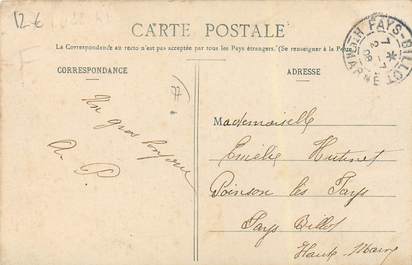 12 €
CARTE POSTALE
La Correspondance au recto n'est pas acceptée par tous les Pays étrangers. (Se renseigner à la Poste
CORRESPONDANCE
ADRESSE
FAYS-BILLOT
HTE MARNE
Un gros bonjour
Mademoiselle
Emélie Hutinet
Poinson les Fays
Fays Billot
Haute Marne